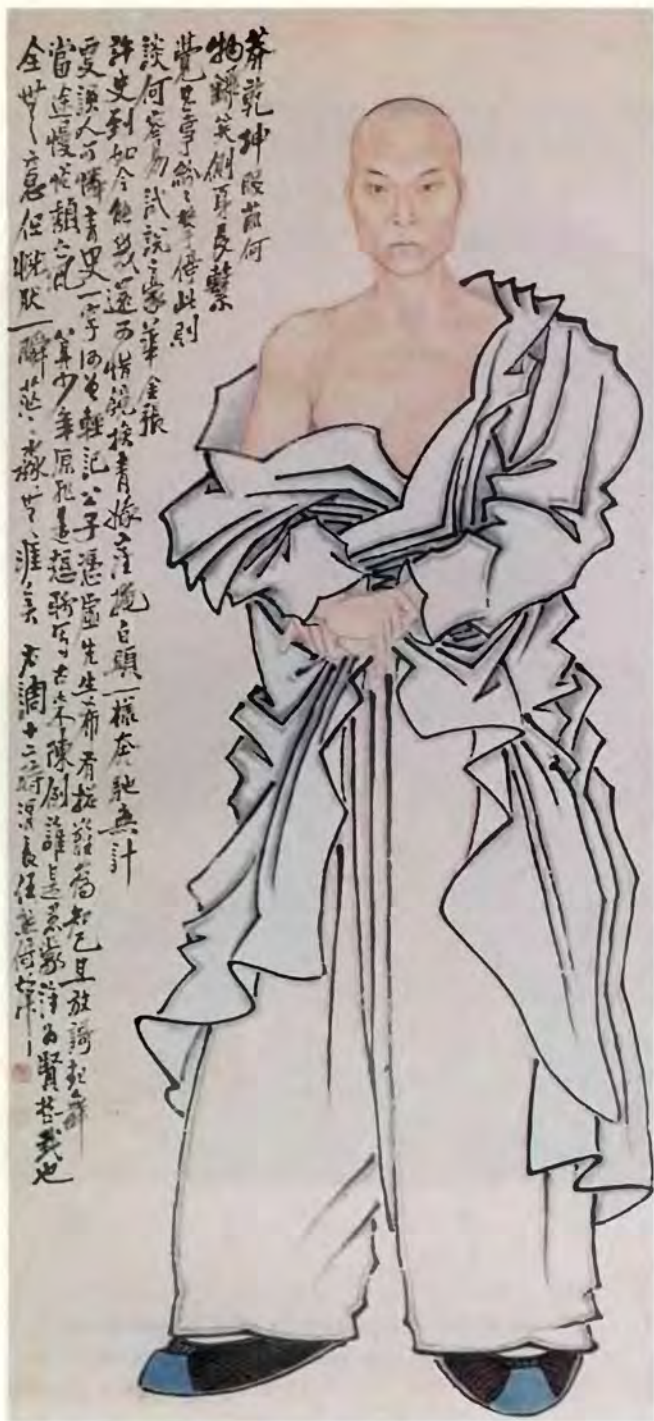 莽乾坤眼前何
物翻笑側身長繫
覺甚事紛々攀倚此則
談何容易試說豪華金張
許史到如今能幾還可惜鏡換青娥塵掩白頭一樣奔馳無計
更誤人可憐青史一字何曾輕記公子憑虛先生希有總難為知己且放謌起舞
當途慢憎頹氣算少年原非是想聊寫古來陳例誰是愚蒙誰為賢哲我也
全無意但恍然一瞬茫々淼無涯矣右調十二時渭長任熊倚聲